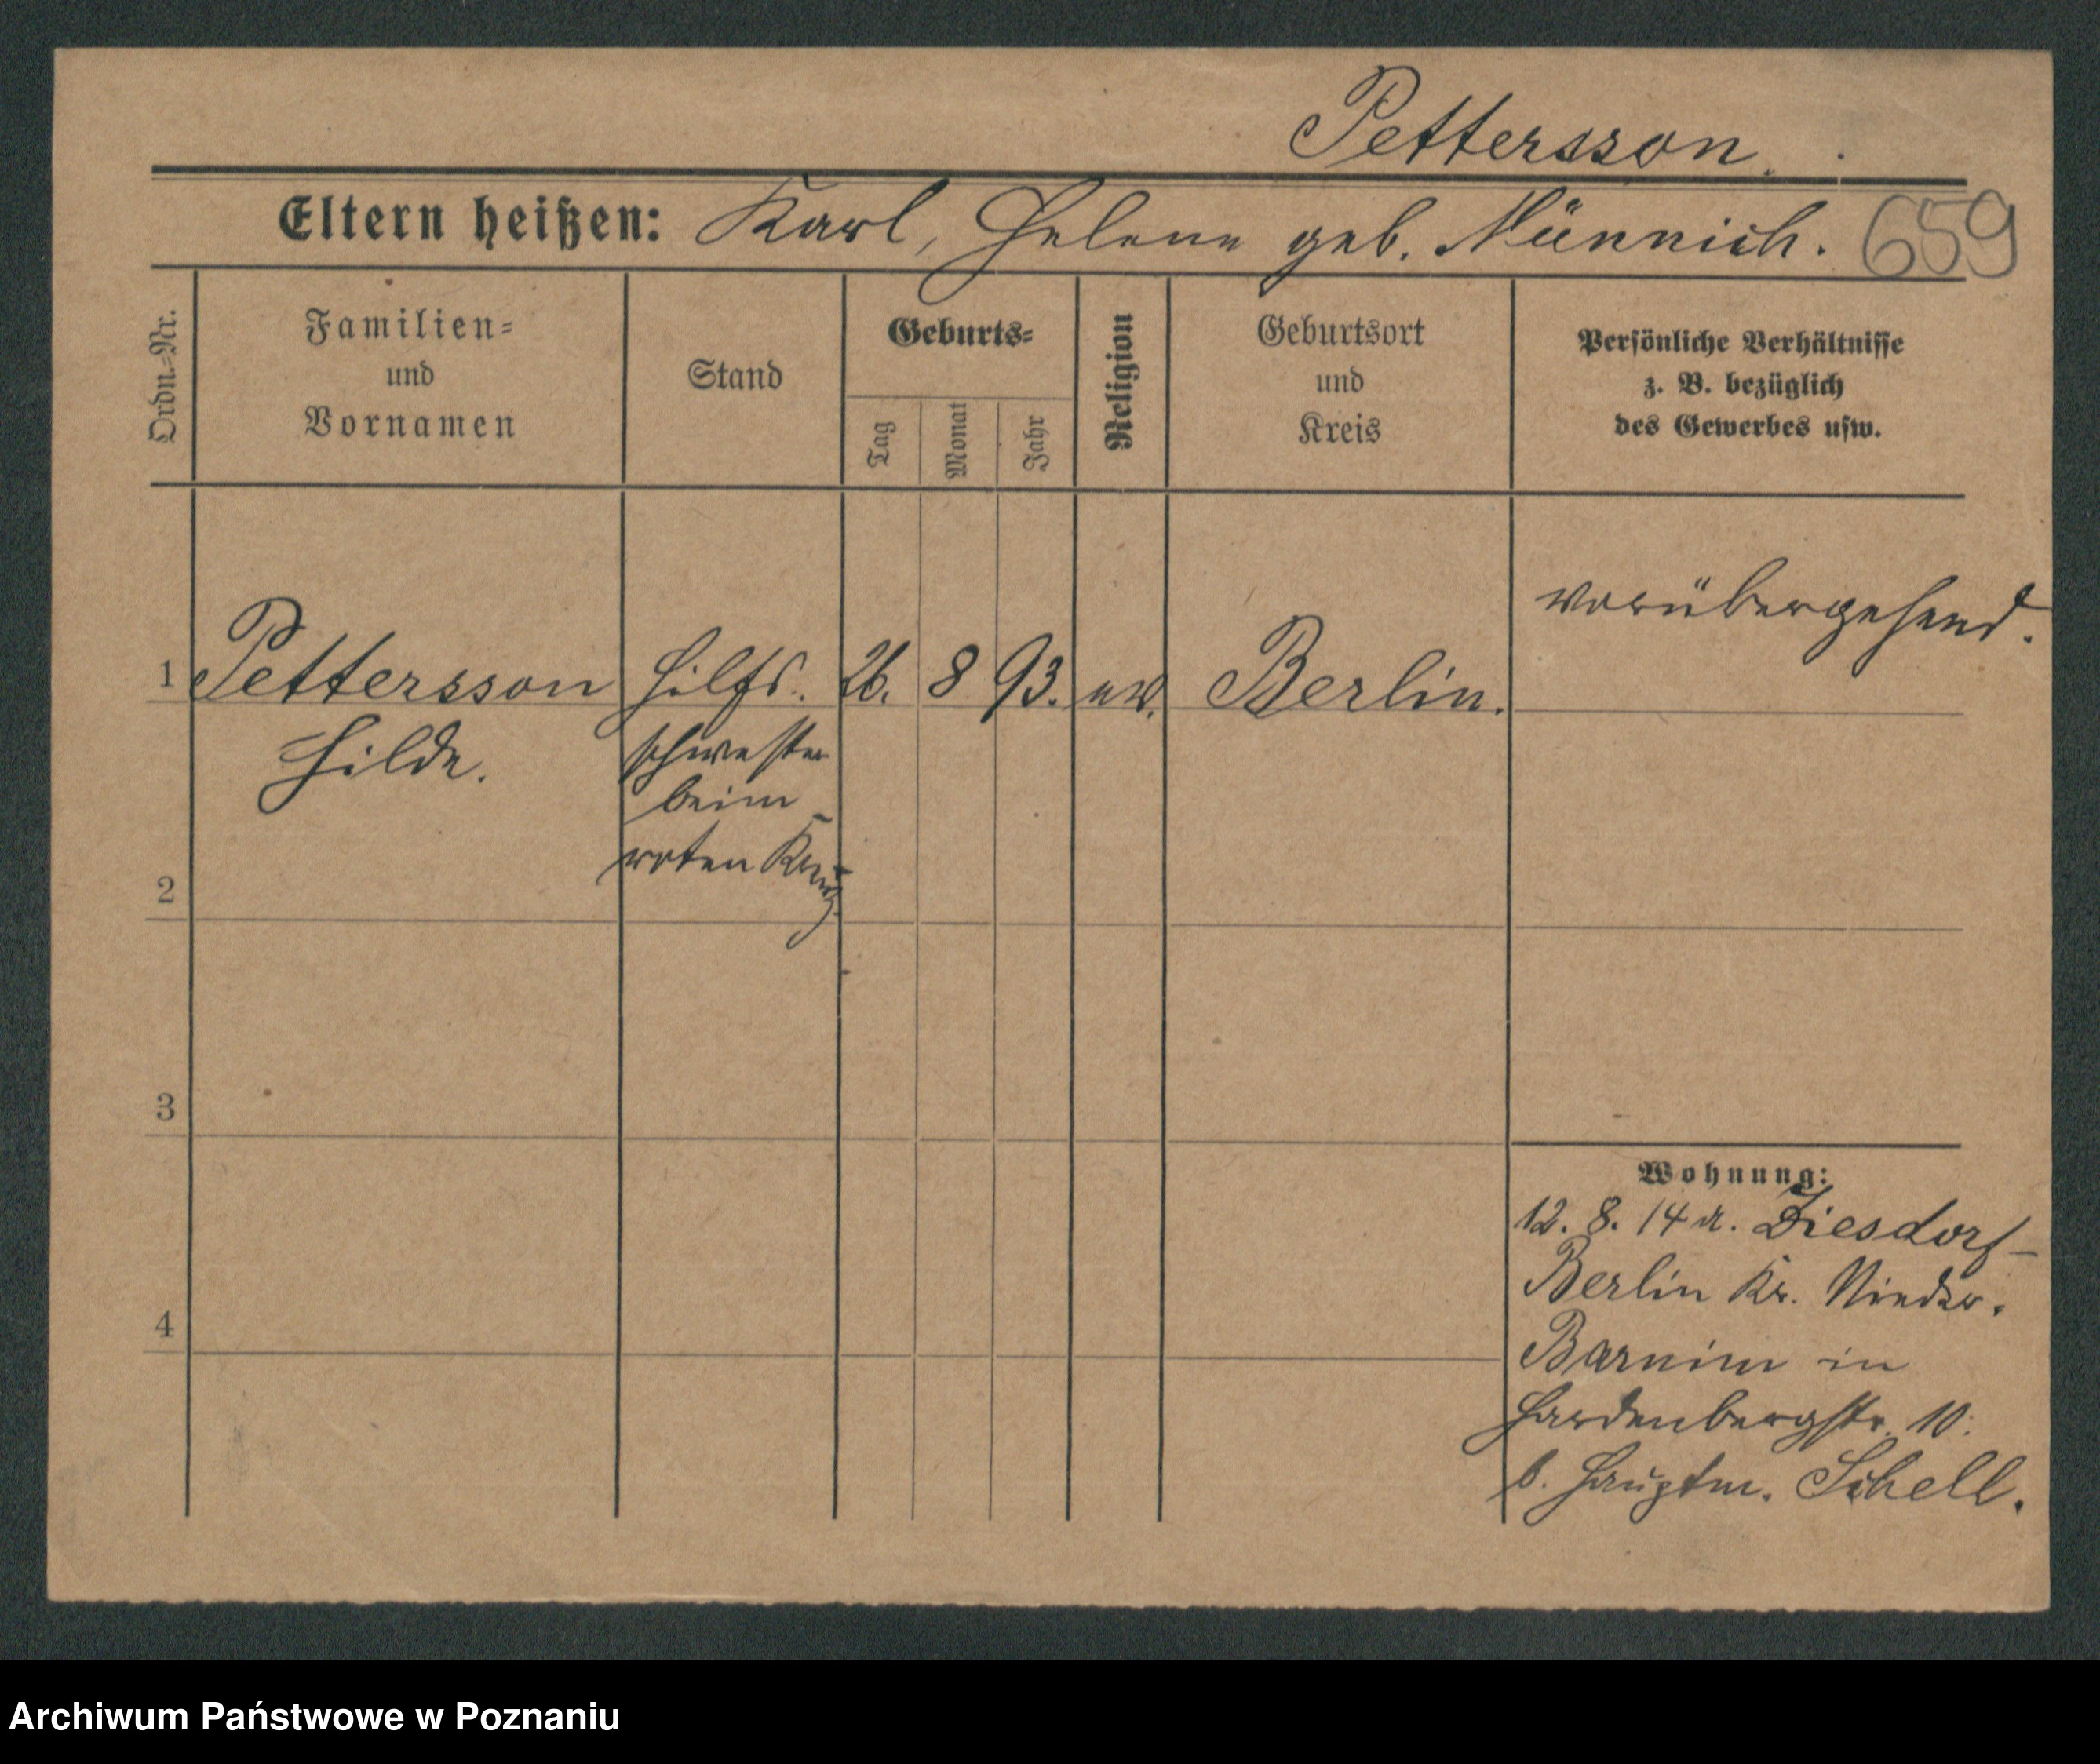 Pettersson.
Eltern heißen: Karl, Helene geb. Münnich. 659
Ordn.-Nr.
Familien-
und
Vornamen
Stand
Geburts-
Tag
Monat
Jahr
Religion
Geburtsort
und
Kreis
Persönliche Verhältnisse
z. B. bezüglich
des Gewerbes usw.
vorübergehend.
1 Pettersson Hilfs. 26. 8 93. ev. Berlin.
Hilde. schwester
beim
roten Kreuz
2
3
4
Wohnung:
12. 8. 14 a. Diesdorf-
Berlin Kr. Nieder.
Barnim in
Hardenbergstr. 10.
b. Hauptm. Schell.
Archiwum Państwowe w Poznaniu